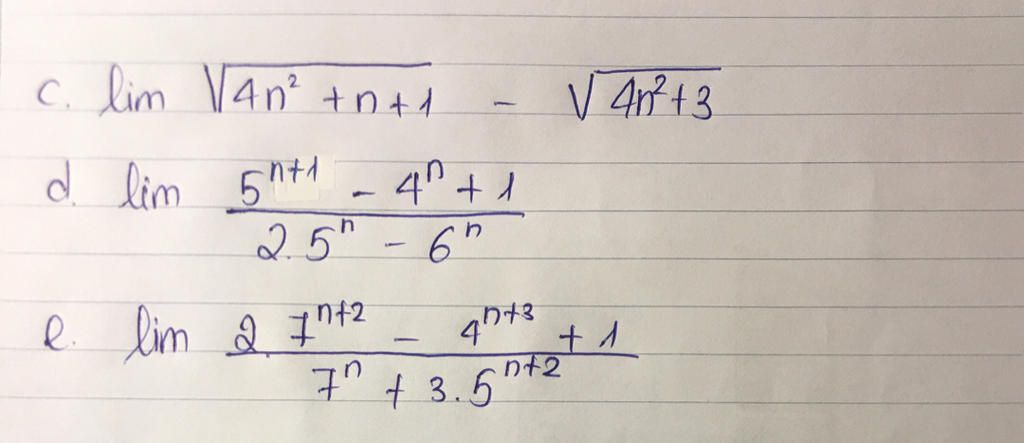 c. lim √(4n² + n + 1) - √(4n² + 3)
d. lim (5ⁿ⁺¹ - 4ⁿ + 1) / (2.5ⁿ - 6ⁿ)
e. lim (2.7ⁿ⁺² - 4ⁿ⁺³ + 1) / (7ⁿ + 3.5ⁿ⁺²)